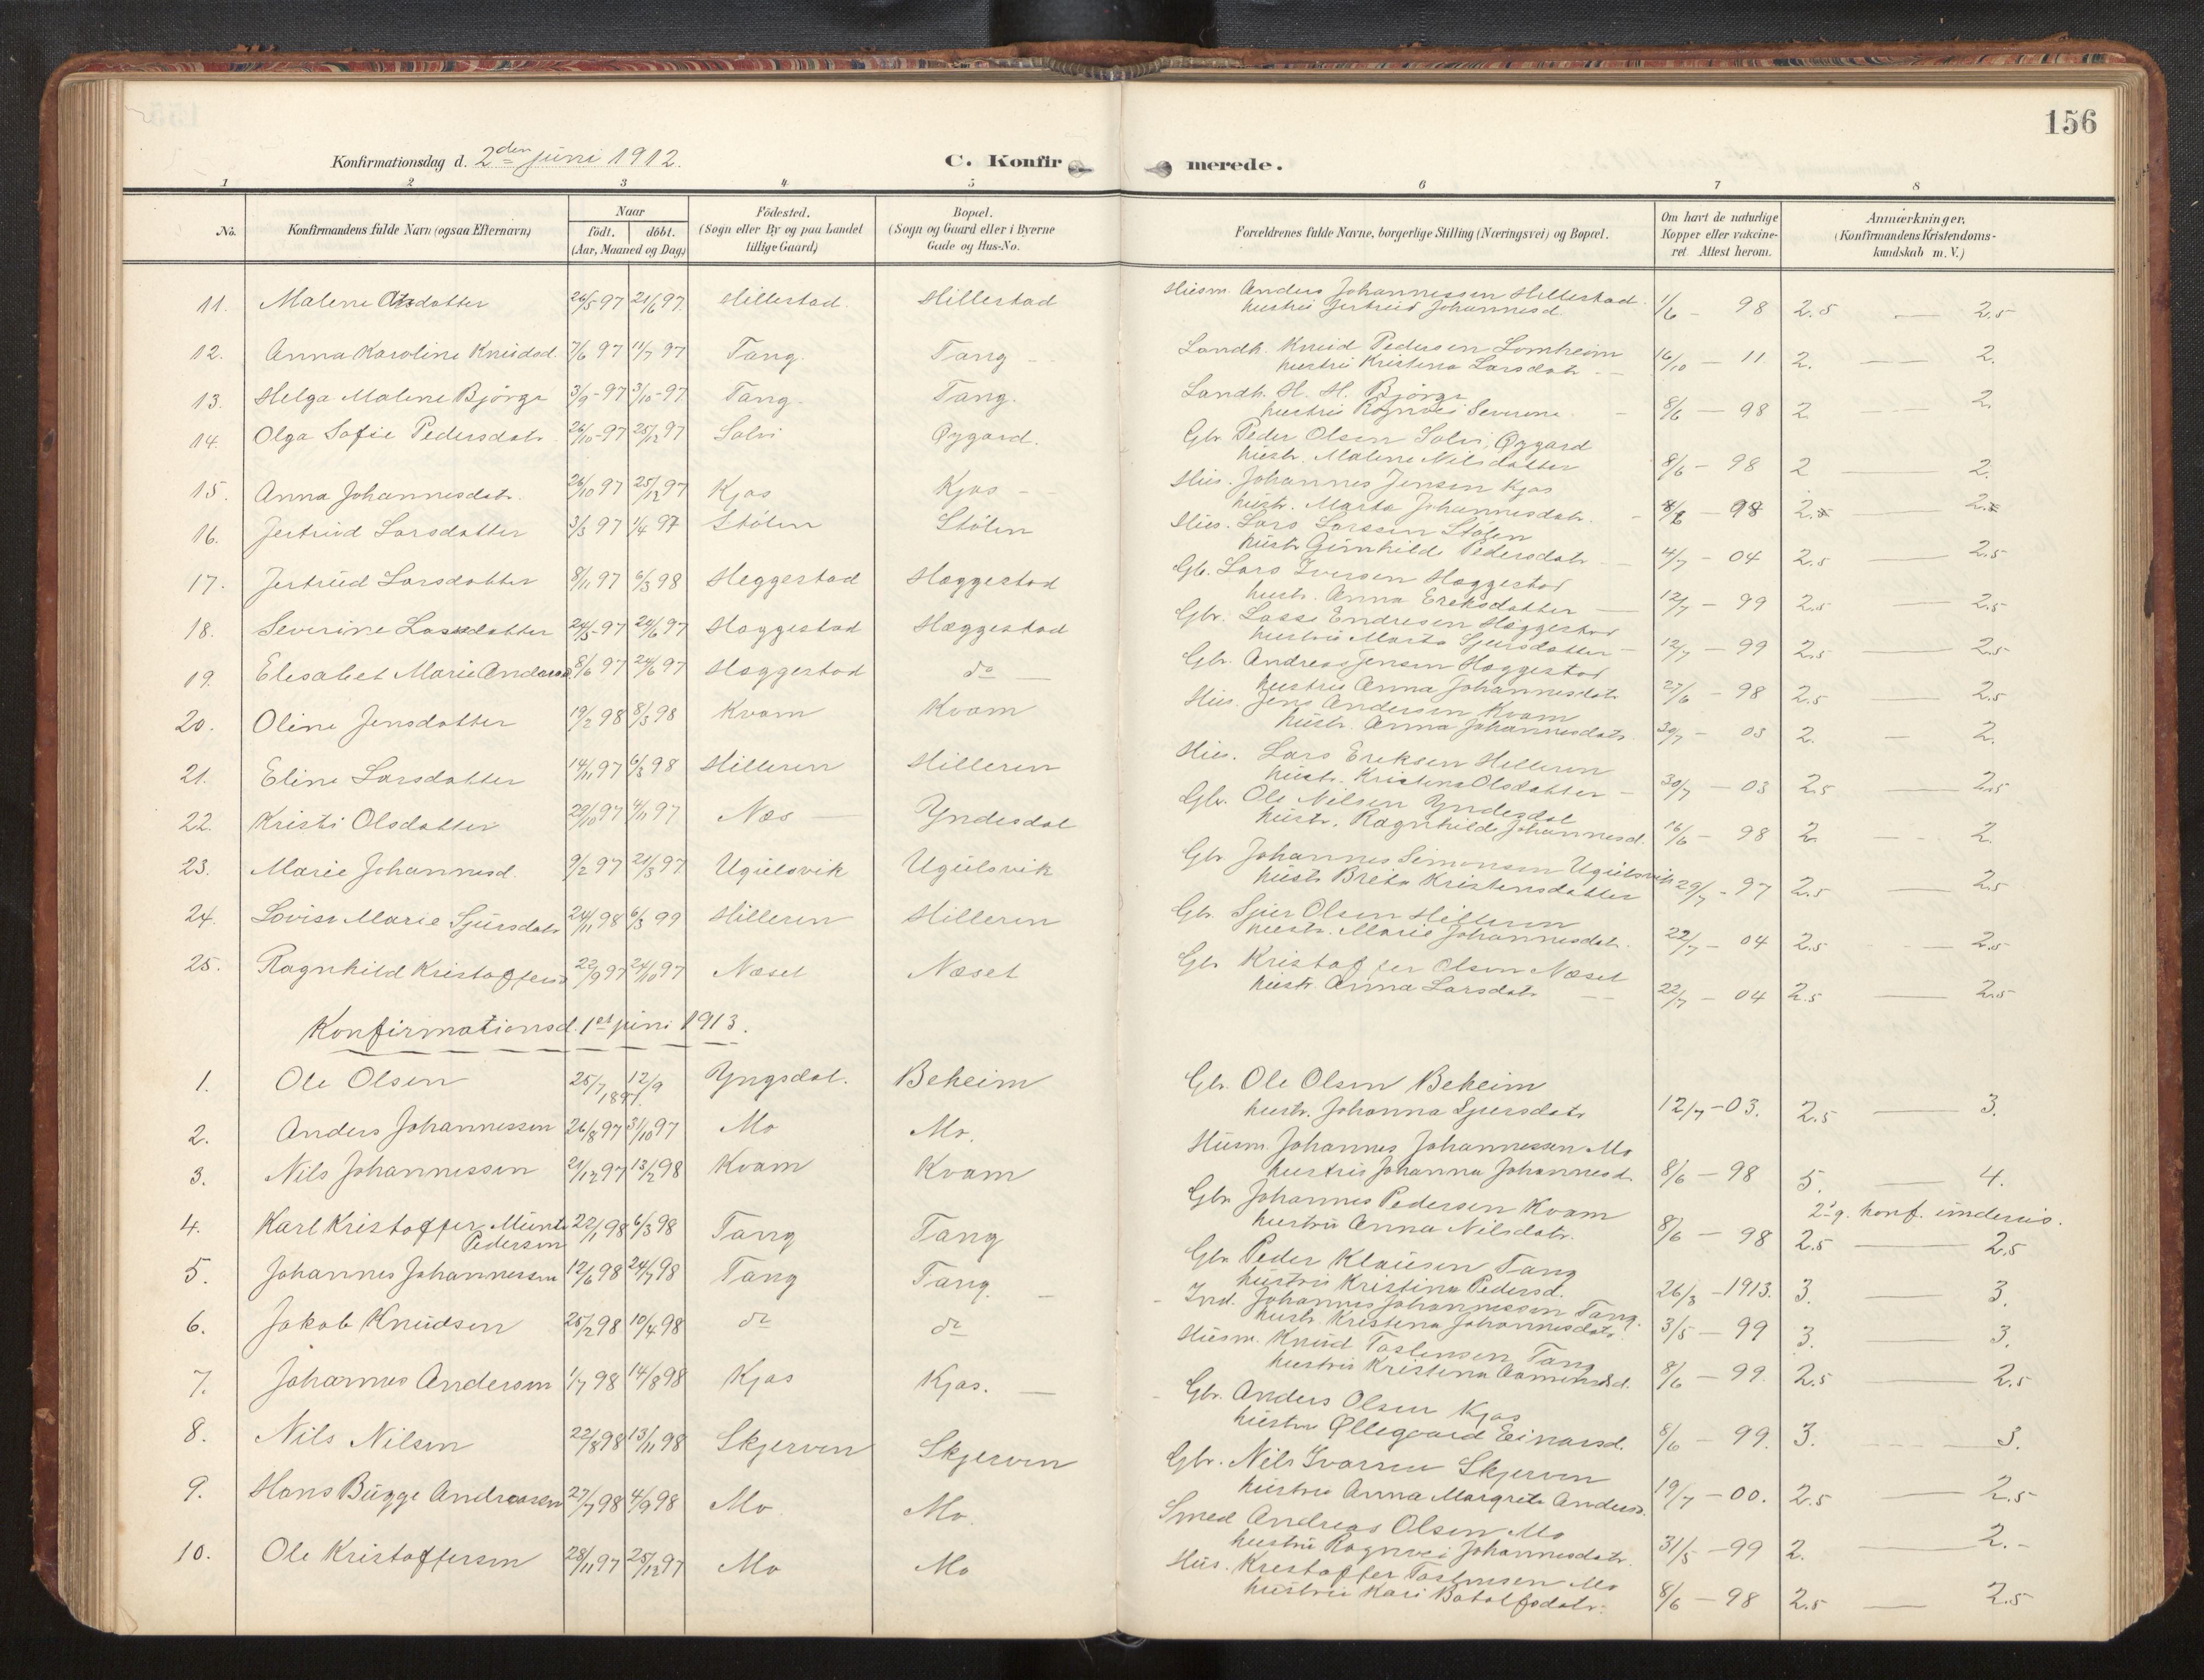 156
Konfirmationsdag d. 2den juni 1912.
C. Konfirmerede.
1 2 3 4 5 6 7 8
No.
Konfirmandens fulde Navn (ogsaa Efternavn)
Naar
født. døbt.
(Aar, Maaned og Dag)
Födested.
(Sogn eller By og paa Landet
tillige Gaard)
Bopæl.
(Sogn og Gaard eller i Byerne
Gade og Hus-No.
Forældrenes fulde Navne, borgerlige Stilling (Næringsvei) og Bopæl.
Om havt de naturlige
Kopper eller vakcine-
ret Attest herom.
Anmærkninger,
(Konfirmandens Kristendoms-
kundskab m. V.)
11. Malene 26/5 97 21/6 97. Hillestad. Hillestad Husm. Anders Johannessen Hillestad. 1/6 - 98 2.5 — 2.5
hustru Jertrud Johannesd.
12. Anna Karoline Knudsd. 7/6 97 11/7 97 Tang. Tang - Landh. Knud Pedersen Lomheim 16/10 - 11 2. — 2.
hustru Kristina Larsdatr. -
13. Helga Malene Björge 3/9-97 3/10-97 Tang. Tang. Landh. H. H. Björge 8/6 - 98 2. 2.
hustru Ragnvei Severine. -
14. Olga Sofie Pedersdatr. 26/10-97 25/12 97 Solvi Øygard. Gbr. Peder Olsen Solvi, Øygard 8/6 - 98 2 — 2.
hustr. Malene Nilsdatter
15. Anna Johannesdatr. 26/10 97 25/12 97 Kjas Kjas - Hus. Johannes Jensen Kjas 8/6 - 98 2. — 2.
hustr. Marta Johannesdatr. -
16. Jertrud Larsdatter 3/3 97 1/4 97 Stölen Stölen Hus. Lars Larssen Stölen 4/7 - 04 2.5 — 2.5
hustr Gunhild Pedersdatr -
17. Jertrud Larsdatter 8/11 97 6/3 98 Heggestad Hæggestad Gb. Lars Iversen Hæggestad 12/7 - 99 2.5 — 2.5
hustr. Anna Ereksdatter —
18. Severine Lassedatter 24/5-97 24/6 97 Hæggestad Hæggestad Gbr. Lasse Endresen Hæggestad 12/7 - 99 2.5 — 2.5
hustru Marta Sjursdatter -
19. Elisabet Marie Andersd 8/6 97 24/6 97 Hæggestad do — Gbr. Andreas Jensen Hæggestad 27/6 - 98 2.5 — 2.5
hustru Anna Johannesdatr
20. Oline Jensdatter 19/2 98 8/3 98 Kvam Kvam Hus. Jens Andersen Kvam 30/7 - 03 2. — 2.
hustr. Anna Johannesdatr
21. Eline Larsdatter 14/11 97 6/3 98 Hilleren Hilleren Hus. Lars Ereksen Hilleren 30/7 - 03 2.5 — 2.5
hustr. Kristina Olsdatter -
22. Kristi Olsdatter 29/10 97 4/11 97 Næs — Yndesdal Gbr. Ole Nilsen Yndesdal 16/6 - 98 2. - 2.
hustr. Ragnhild Johannesd.
23. Marie Johannesd. 9/2 97 21/3 97 Ugulsvik Ugulsvik Gbr Johannes Simonsen Ugulsvik 29/7 - 97 2.5 — 2.5
hustr Breta Kristensdatter
24. Lovise Marie Sjursdatr 24/11 98 6/3 99 Hilleren Hilleren Gb. Sjur Olsen Hilleren 22/7 - 04 2.5 - 2.5
hustr. Marie Johannesdatr.
25. Ragnhild Kristoffersd 22/9 97 24/10 97 Næset Næset Gb Kristoffer Olsen Næset 22/7 - 04 2.5 — 2.5
hustr. Anna Larsdatr —
Konfirmationsd. 1st juni 1913.
1. Ole Olsen 25/7 12/9 1897. Yngsdal. Beheim Gb. Ole Olsen Beheim 12/7 - 03. 2.5 — 3.
hustr. Johanna Sjursdatr
2. Anders Johannessen 26/8 97 31/10 97 Mo Mo. Husm. Johannes Johannessen Mo 8/6 - 98 5. — 4.
hustru Johanna Johannesd. 2.g. konf. undervis.
3. Nils Johannessen 21/12 97 13/2 98 Kvam Kvam Gbr Johannes Pedersen Kvam 8/6 - 98 2.5 — 2.5
hustru Anna Nilsdatr.
4. Karl Kristoffer Munte Pedersen 22/1 98 6/3 98 Tang Tang Gbr Peder Klausen Tang 26/3 - 1913. 3. — 3.
hustru Kristina Pedersd.
5. Johannes Johannessen 12/6 98 24/7 98 Tang Tang. - Ind. Johannes Johannessen Tang. 3/5 - 99 3. — 3.
hustr. Kristina Johannesdatr.
6. Jakob Knudsen 25/2 98 10/4 98 do do Husm. Knud Taslensen Tang 8/6 - 99. 2.5 — 2.5
hustru Kristina Aamundsd.
7. Johannes Andersen 1/7 98 14/8 98 Kjas Kjas. — Gbr. Anders Olsen Kjas 8/6 - 99. 3. - 3.
hustru Øllegaard Einarsd.
8. Nils Nilsen 22/8 98 13/11 98 Skjerven Skjerven Gbr. Nils Ivarsen Skjerven 19/7 - 00. 2.5 — 2.5
hustru Anna Margrete Andersd.
9. Hans Bugge Andreassen 27/7 98 4/9 98 Mo. Mo. Smed Andreas Olsen Mo 31/5 - 99 2. — 2.-
hustru Ragnvei Johannesdatr.
10. Ole Kristoffersen 28/11 97 25/12 97 Mo Mo Hus. Kristoffer Taslensen Mo 8/6 - 98 2.5 — 2.5
hustru Kari Botolfsdatr.